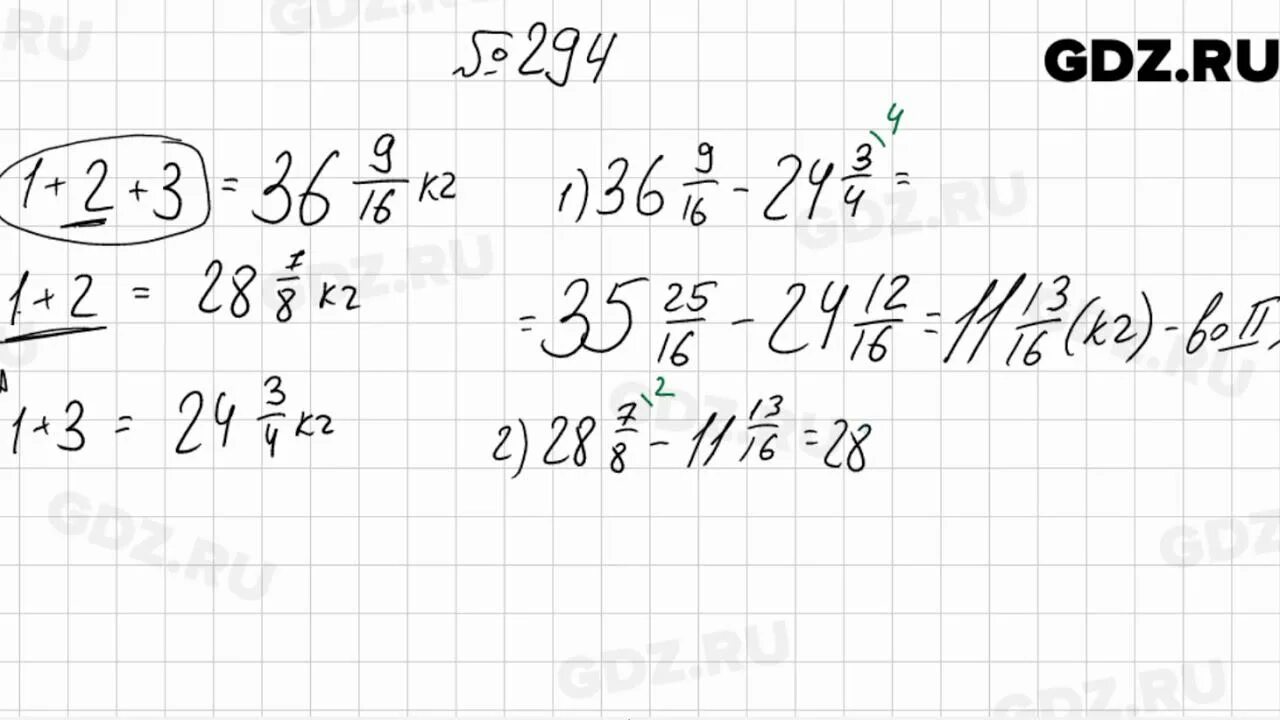 №294
GDZ.RU
1+2+3 = 36 9/16 кг
1+2 = 28 7/8 кг
1+3 = 24 3/4 кг
1) 36 9/16 - 24 3/4 =
4
= 35 25/16 - 24 12/16 = 11 13/16 (кг) - во II
2) 28 7/8 - 11 13/16 = 28
2
GDZ.RU
GDZ.RU
GDZ.RU
GDZ.RU
GDZ.RU
GDZ.RU
GDZ.RU
GDZ.RU